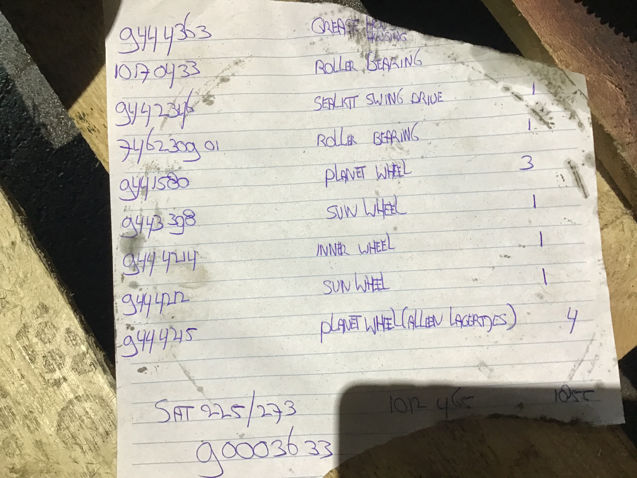 9444363 GREASE HOUSING
10170433 ROLLER BEARING
9442346 SEALKIT SWING DRIVE 1
746230901 ROLLER BEARING 1
9441580 PLANET WHEEL 3
9443398 SUN WHEEL 1
INNER WHEEL 1
SUN WHEEL 1
PLANET WHEEL (ALLEEN LAGERTJES) 4
SAT 225/273 1012 465 1055
90003633